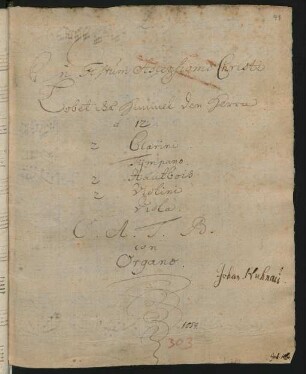 Festum Christi
Lobet Ihr Himmel den Herrn
à 12
2 Clarini
Tympano
2 Hautbois
2 Violini
Viola
C. A. T. B.
con
Organo.
Johan. Kuhnau
303